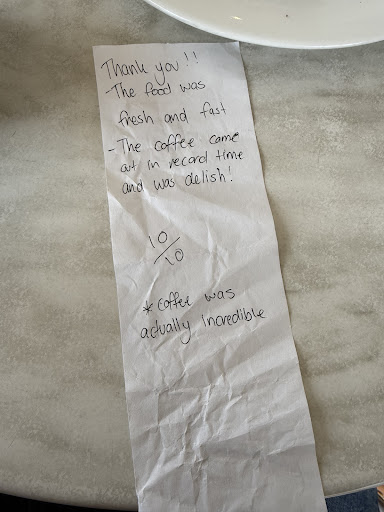 Thank you!!
- The food was
fresh and fast
- The coffee came
out in record time
and was delish!
10/10
* Coffee was
actually incredible